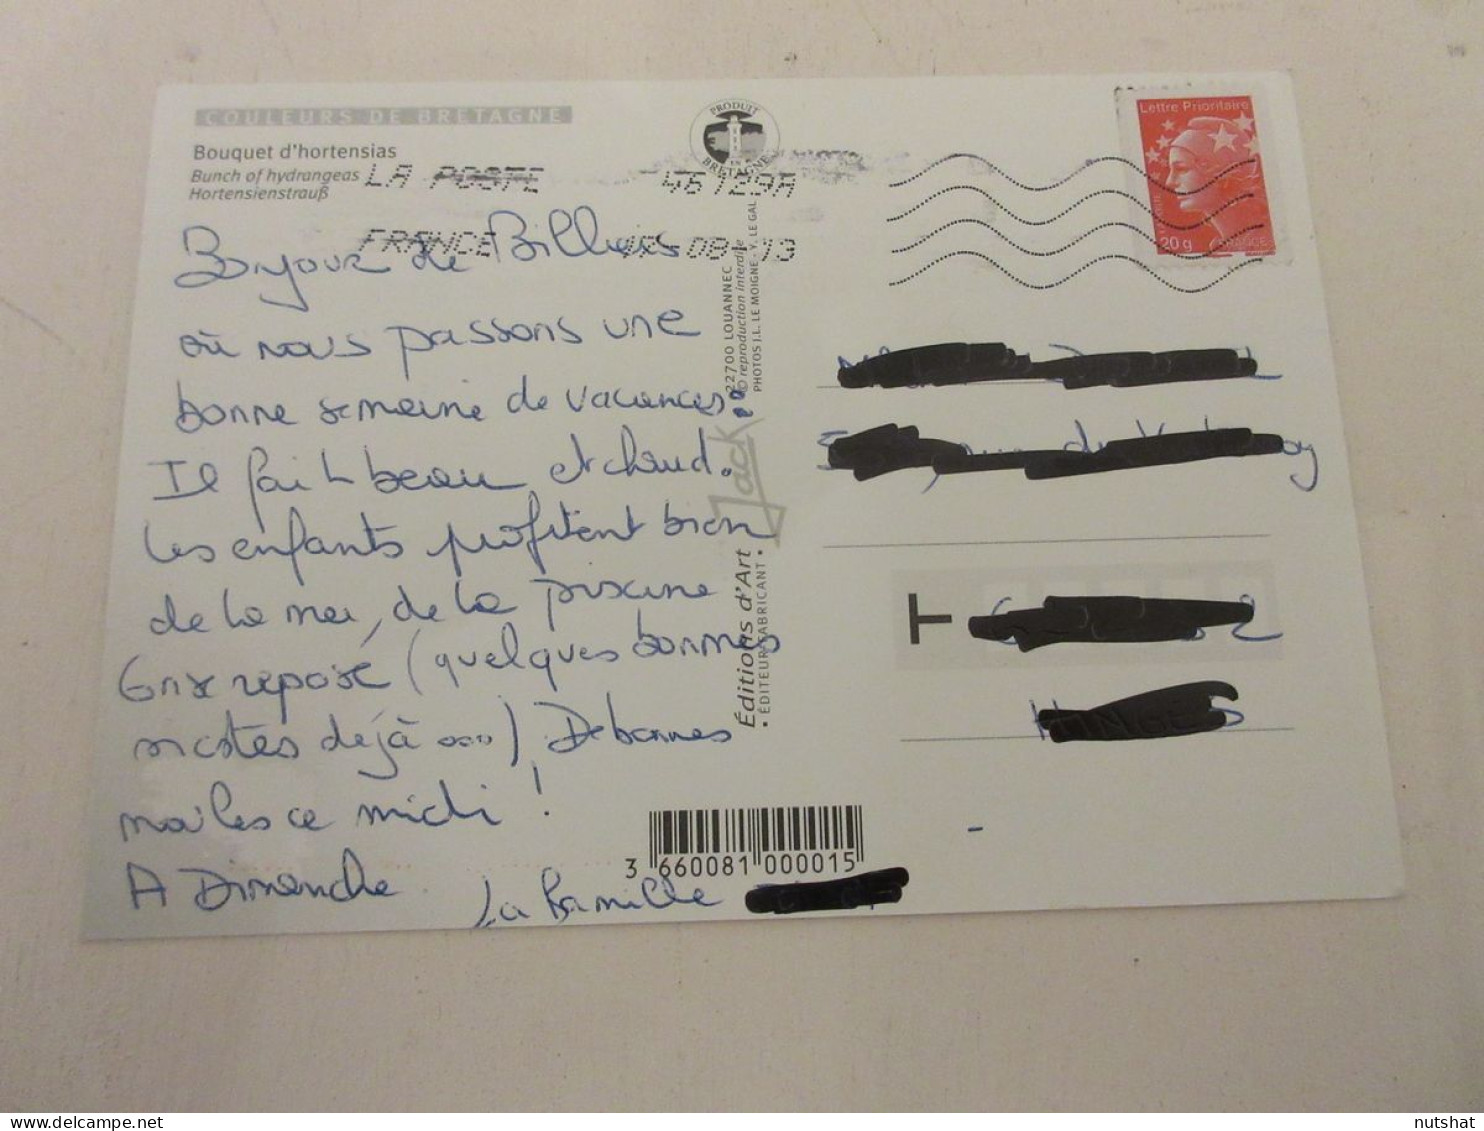 COULEURS DE BRETAGNE
Bouquet d'hortensias
Bunch of hydrangeas
Hortensienstrauß
PRODUIT EN BRETAGNE
LA POSTE 46129A
FRANCE 08-13
Lettre Prioritaire
20g FRANCE
Bonjour de Billiers
où nous passons une
bonne semaine de vacances.
Il fait beau et chaud.
Les enfants profitent bien
de la mer, de la piscine
On se repose (quelques bonnes
siestes déjà ...) De bonnes
moules ce midi !
A Dimanche
La Famille
22700 LOUANNEC
© reproduction interdite
PHOTOS J.L. LE MOIGNE - Y. LE GAL
Jack
Éditions d'Art
• ÉDITEUR FABRICANT •
3 660081 000015
nutshat